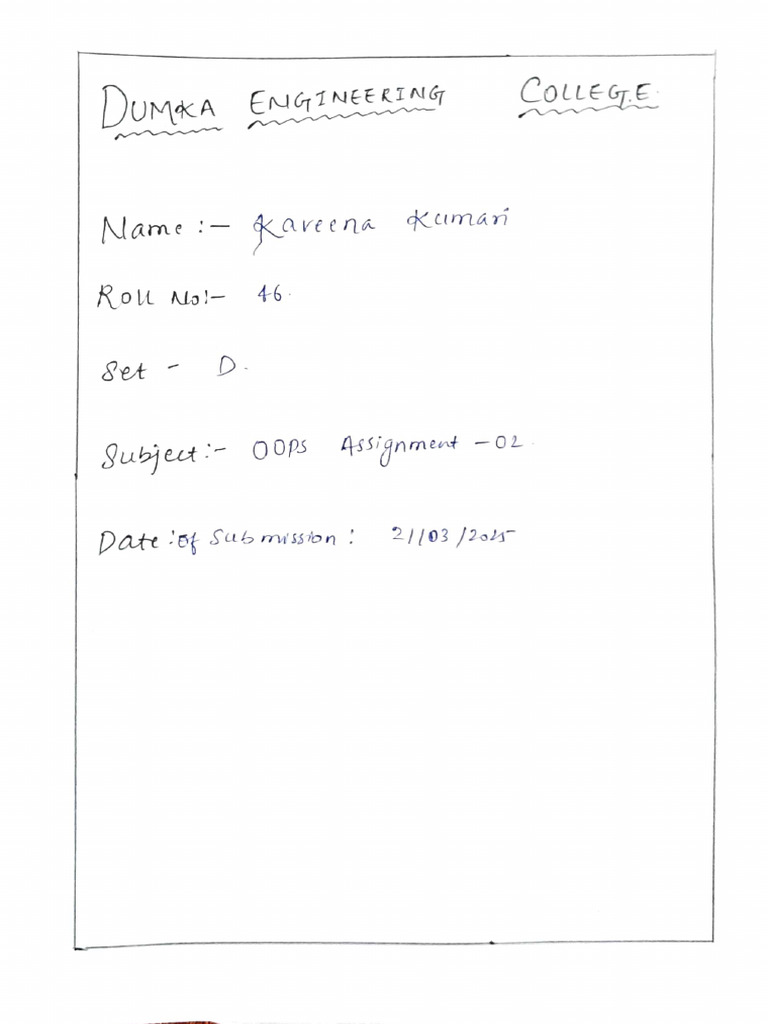 DUMKA ENGINEERING COLLEGE
Name :- Kareena Kumari
Roll No:- 46.
Set - D.
Subject:- OOPS Assignment - 02.
Date : of Submission : 21/03/2025